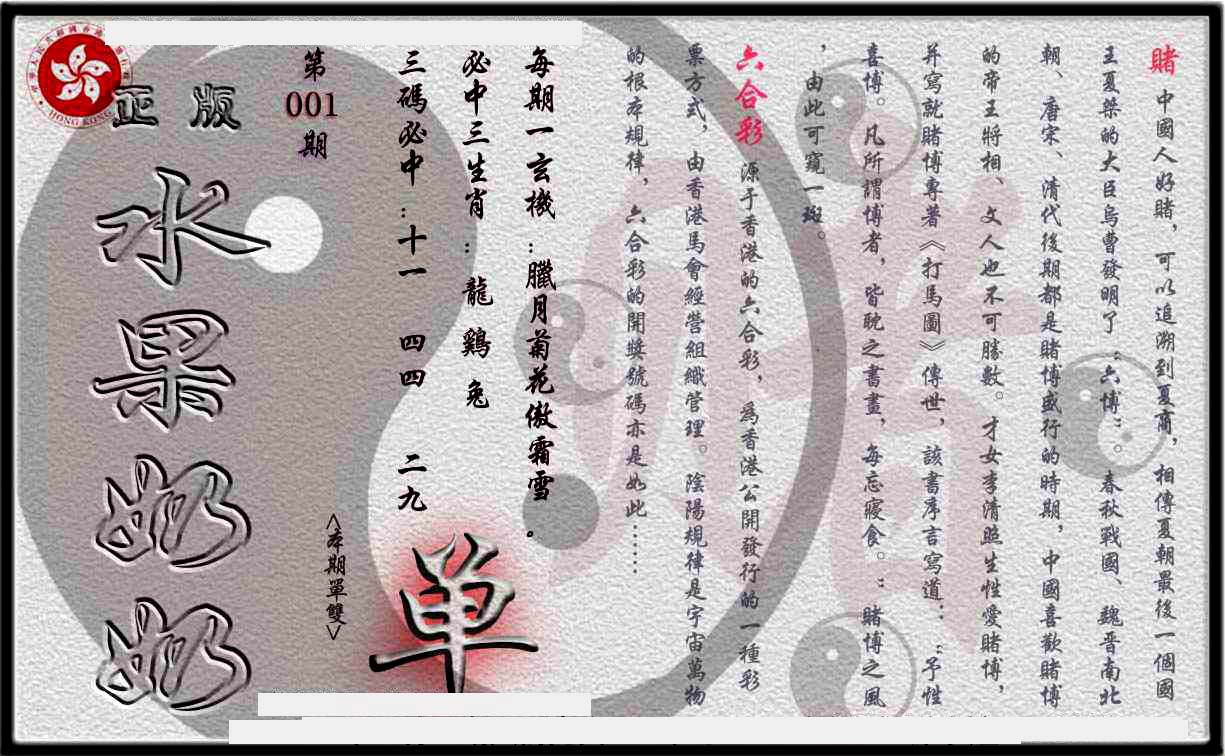 賭 中國人好賭，可以追溯到夏商，相傳夏朝最後一個國
王夏桀的大臣烏曹發明了“六博”。春秋戰國、魏晉南北
朝、唐宋、清代後期都是賭博盛行的時期，中國喜歡賭博
的帝王將相、文人也不可勝數。才女李清照生性愛賭博，
并寫就賭博專著《打馬圖》傳世，該書序言寫道：“予性
喜博。凡所謂博者，皆耽之書畫，每忘寢食。”賭博之風
，由此可窺一斑。
六合彩 源于香港的六合彩，爲香港公開發行的一種彩
票方式，由香港馬會經營組織管理。陰陽規律是宇宙萬物
的根本規律，六合彩的開獎號碼亦是如此……
每期一玄機：臘月菊花傲霜雪。
必中三生肖：龍 鷄 兔
三碼必中：十一 四四 二九
單
<本期單雙>
第001期
正版
水果奶奶
HONG KONG